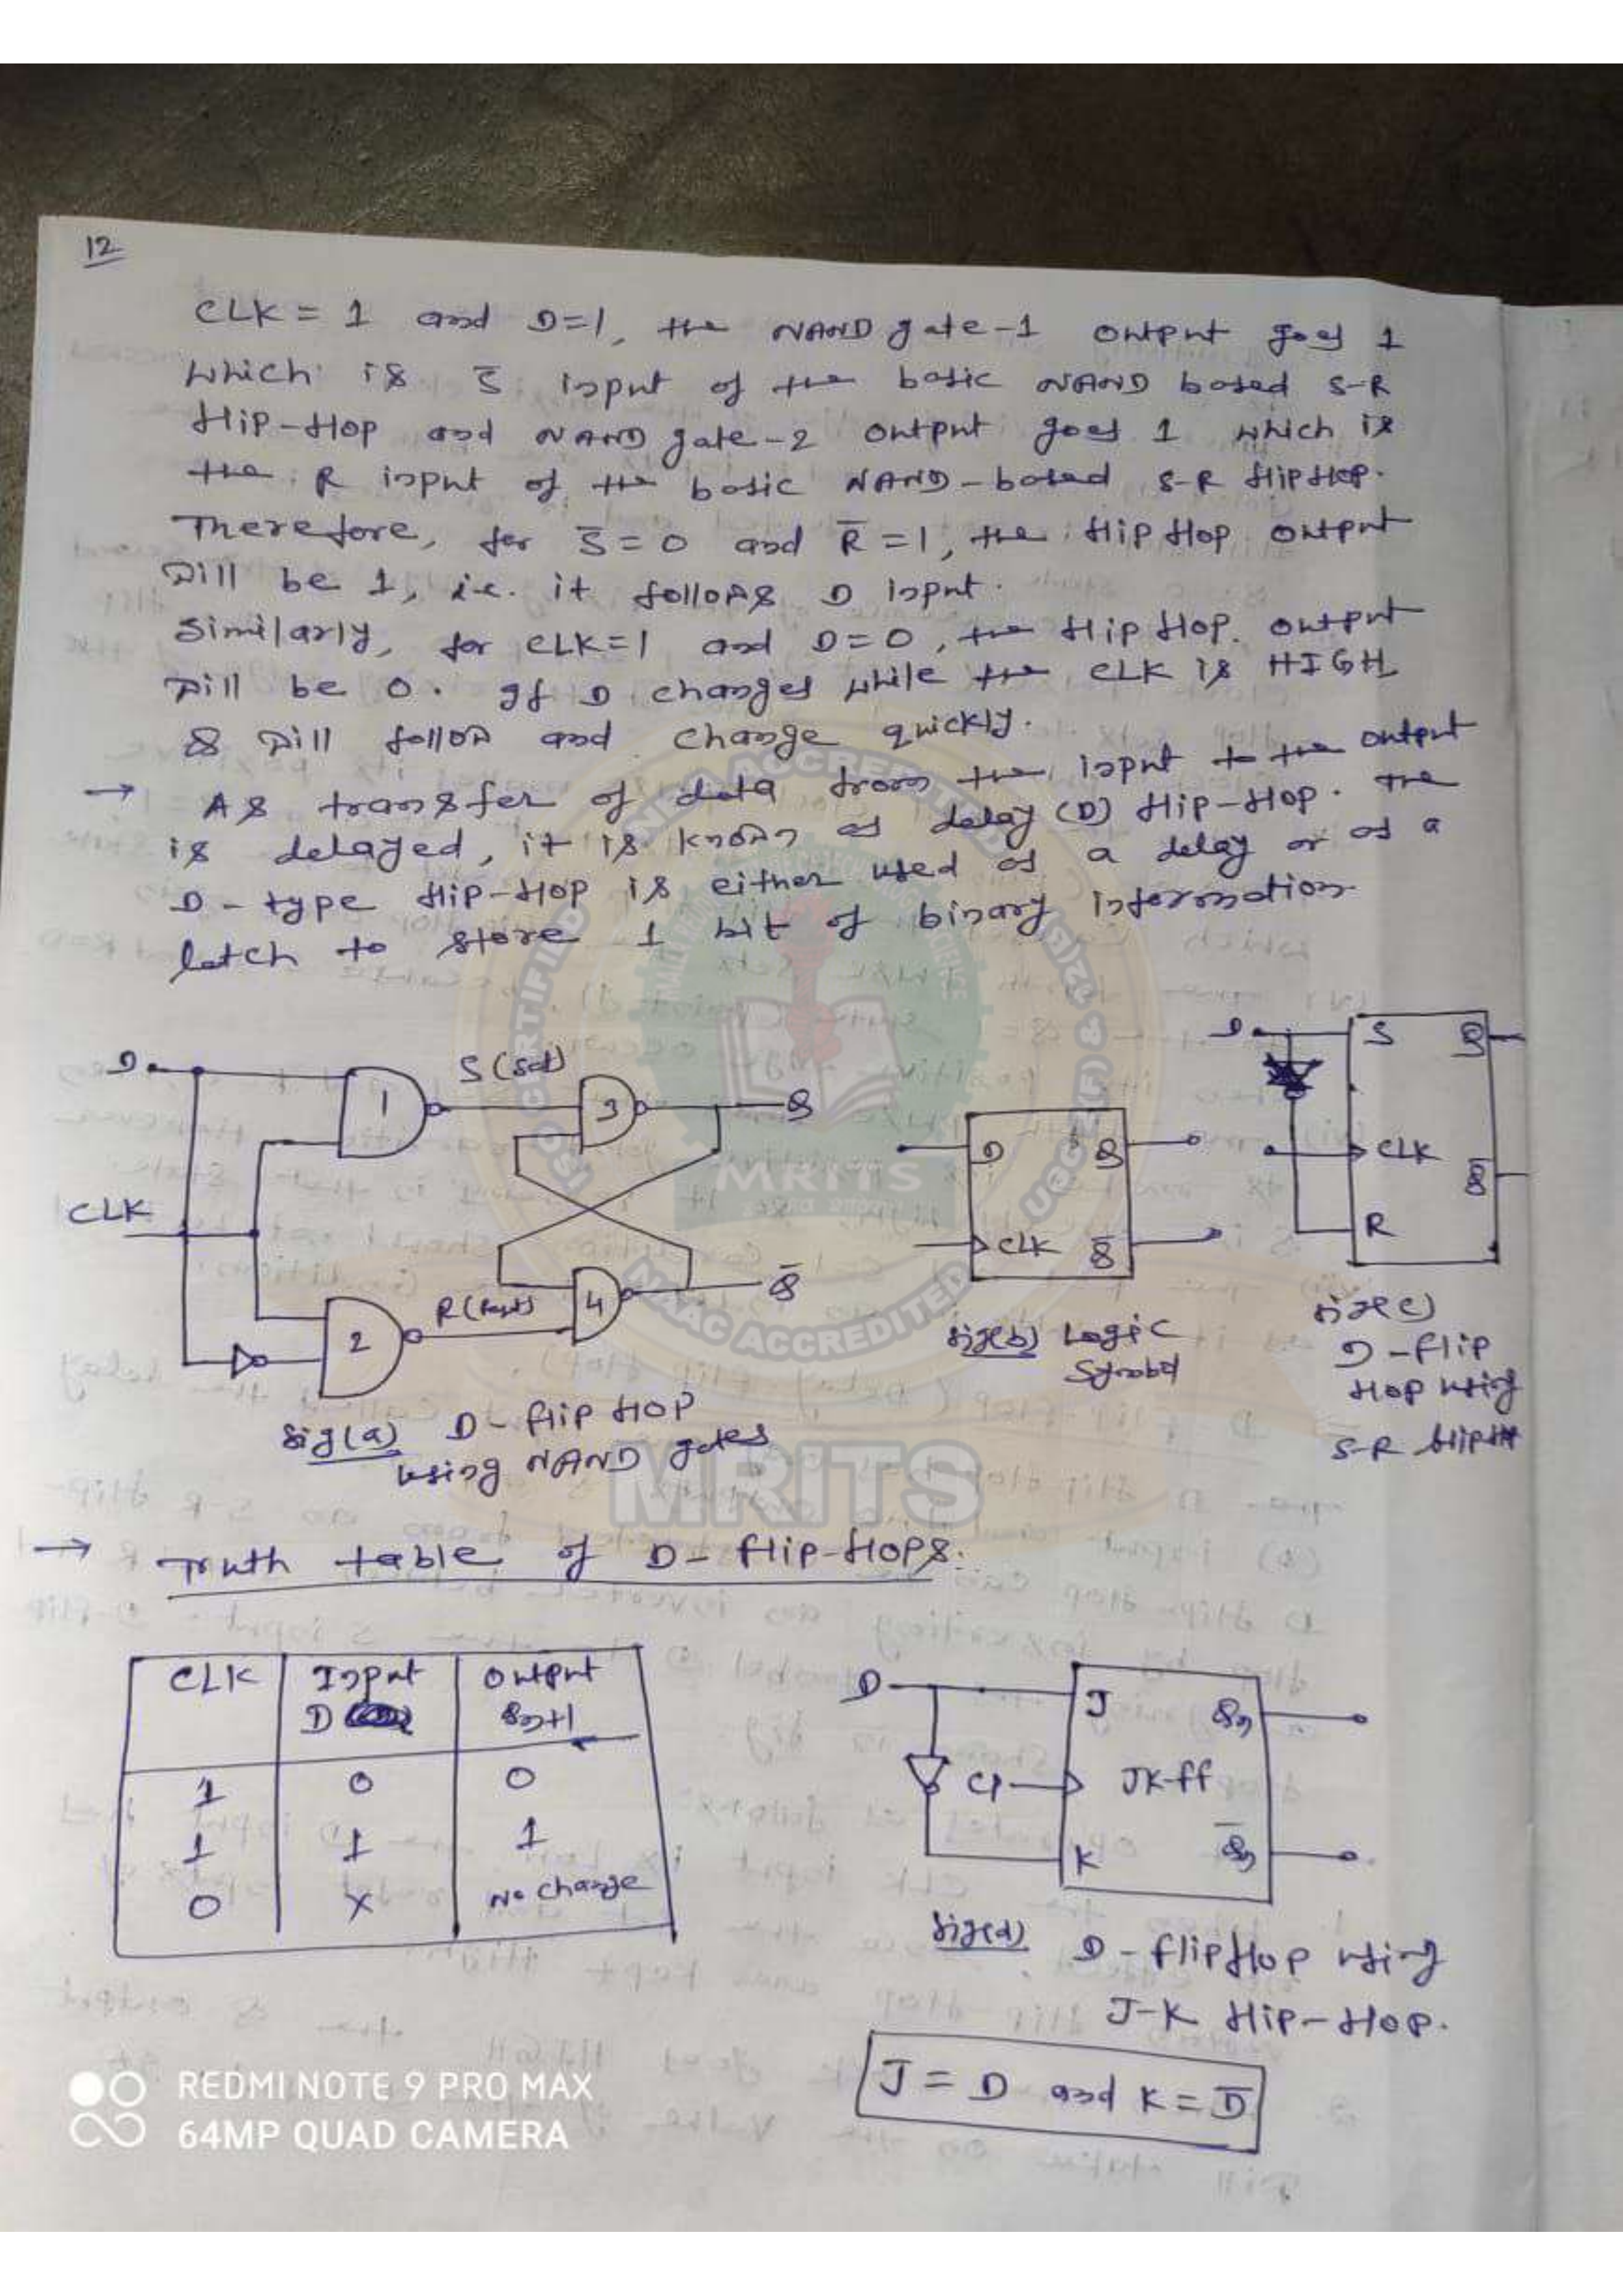 12
CLK = 1 and D=1, the NAND gate-1 output goes 1
which is S̅ input of the basic NAND based S-R
flip-flop and NAND gate-2 output goes 1 which is
the R input of the basic NAND-based S-R flipflop.
Therefore, for S̅=0 and R̅=1, the flip flop output
will be 1, i.e. it follows D input.
Similarly, for CLK=1 and D=0, the flip flop output
will be 0. If D changes while the CLK is HIGH
Q will follow and change quickly.
→ As transfer of data from the input to the output
is delayed, it is known as delay (D) flip-flop. The
D-type flip-flop is either used as a delay or as a
latch to store 1 bit of binary information.
D
1
S(Set)
3
Q
CLK
2
R(Reset)
4
Q̅
fig(a) D-flip flop
using NAND gates
D
Q
CLK
Q̅
fig(b) Logic
Symbol
D
S
Q
CLK
Q̅
R
fig(c)
D-flip
flop using
S-R flip
→ Truth table of D-flip-flops:
CLK Input Output
D Qn+1
1 0 0
1 1 1
0 X No change
D
J
Qn
CP
JK-ff
K
Q̅n
fig(d) D-flipflop using
J-K flip-flop.
J = D and K = D̅
REDMI NOTE 9 PRO MAX
64MP QUAD CAMERA
MRITS
NBA ACCREDITED
NAAC ACCREDITED
ISO CERTIFIED
MRITS